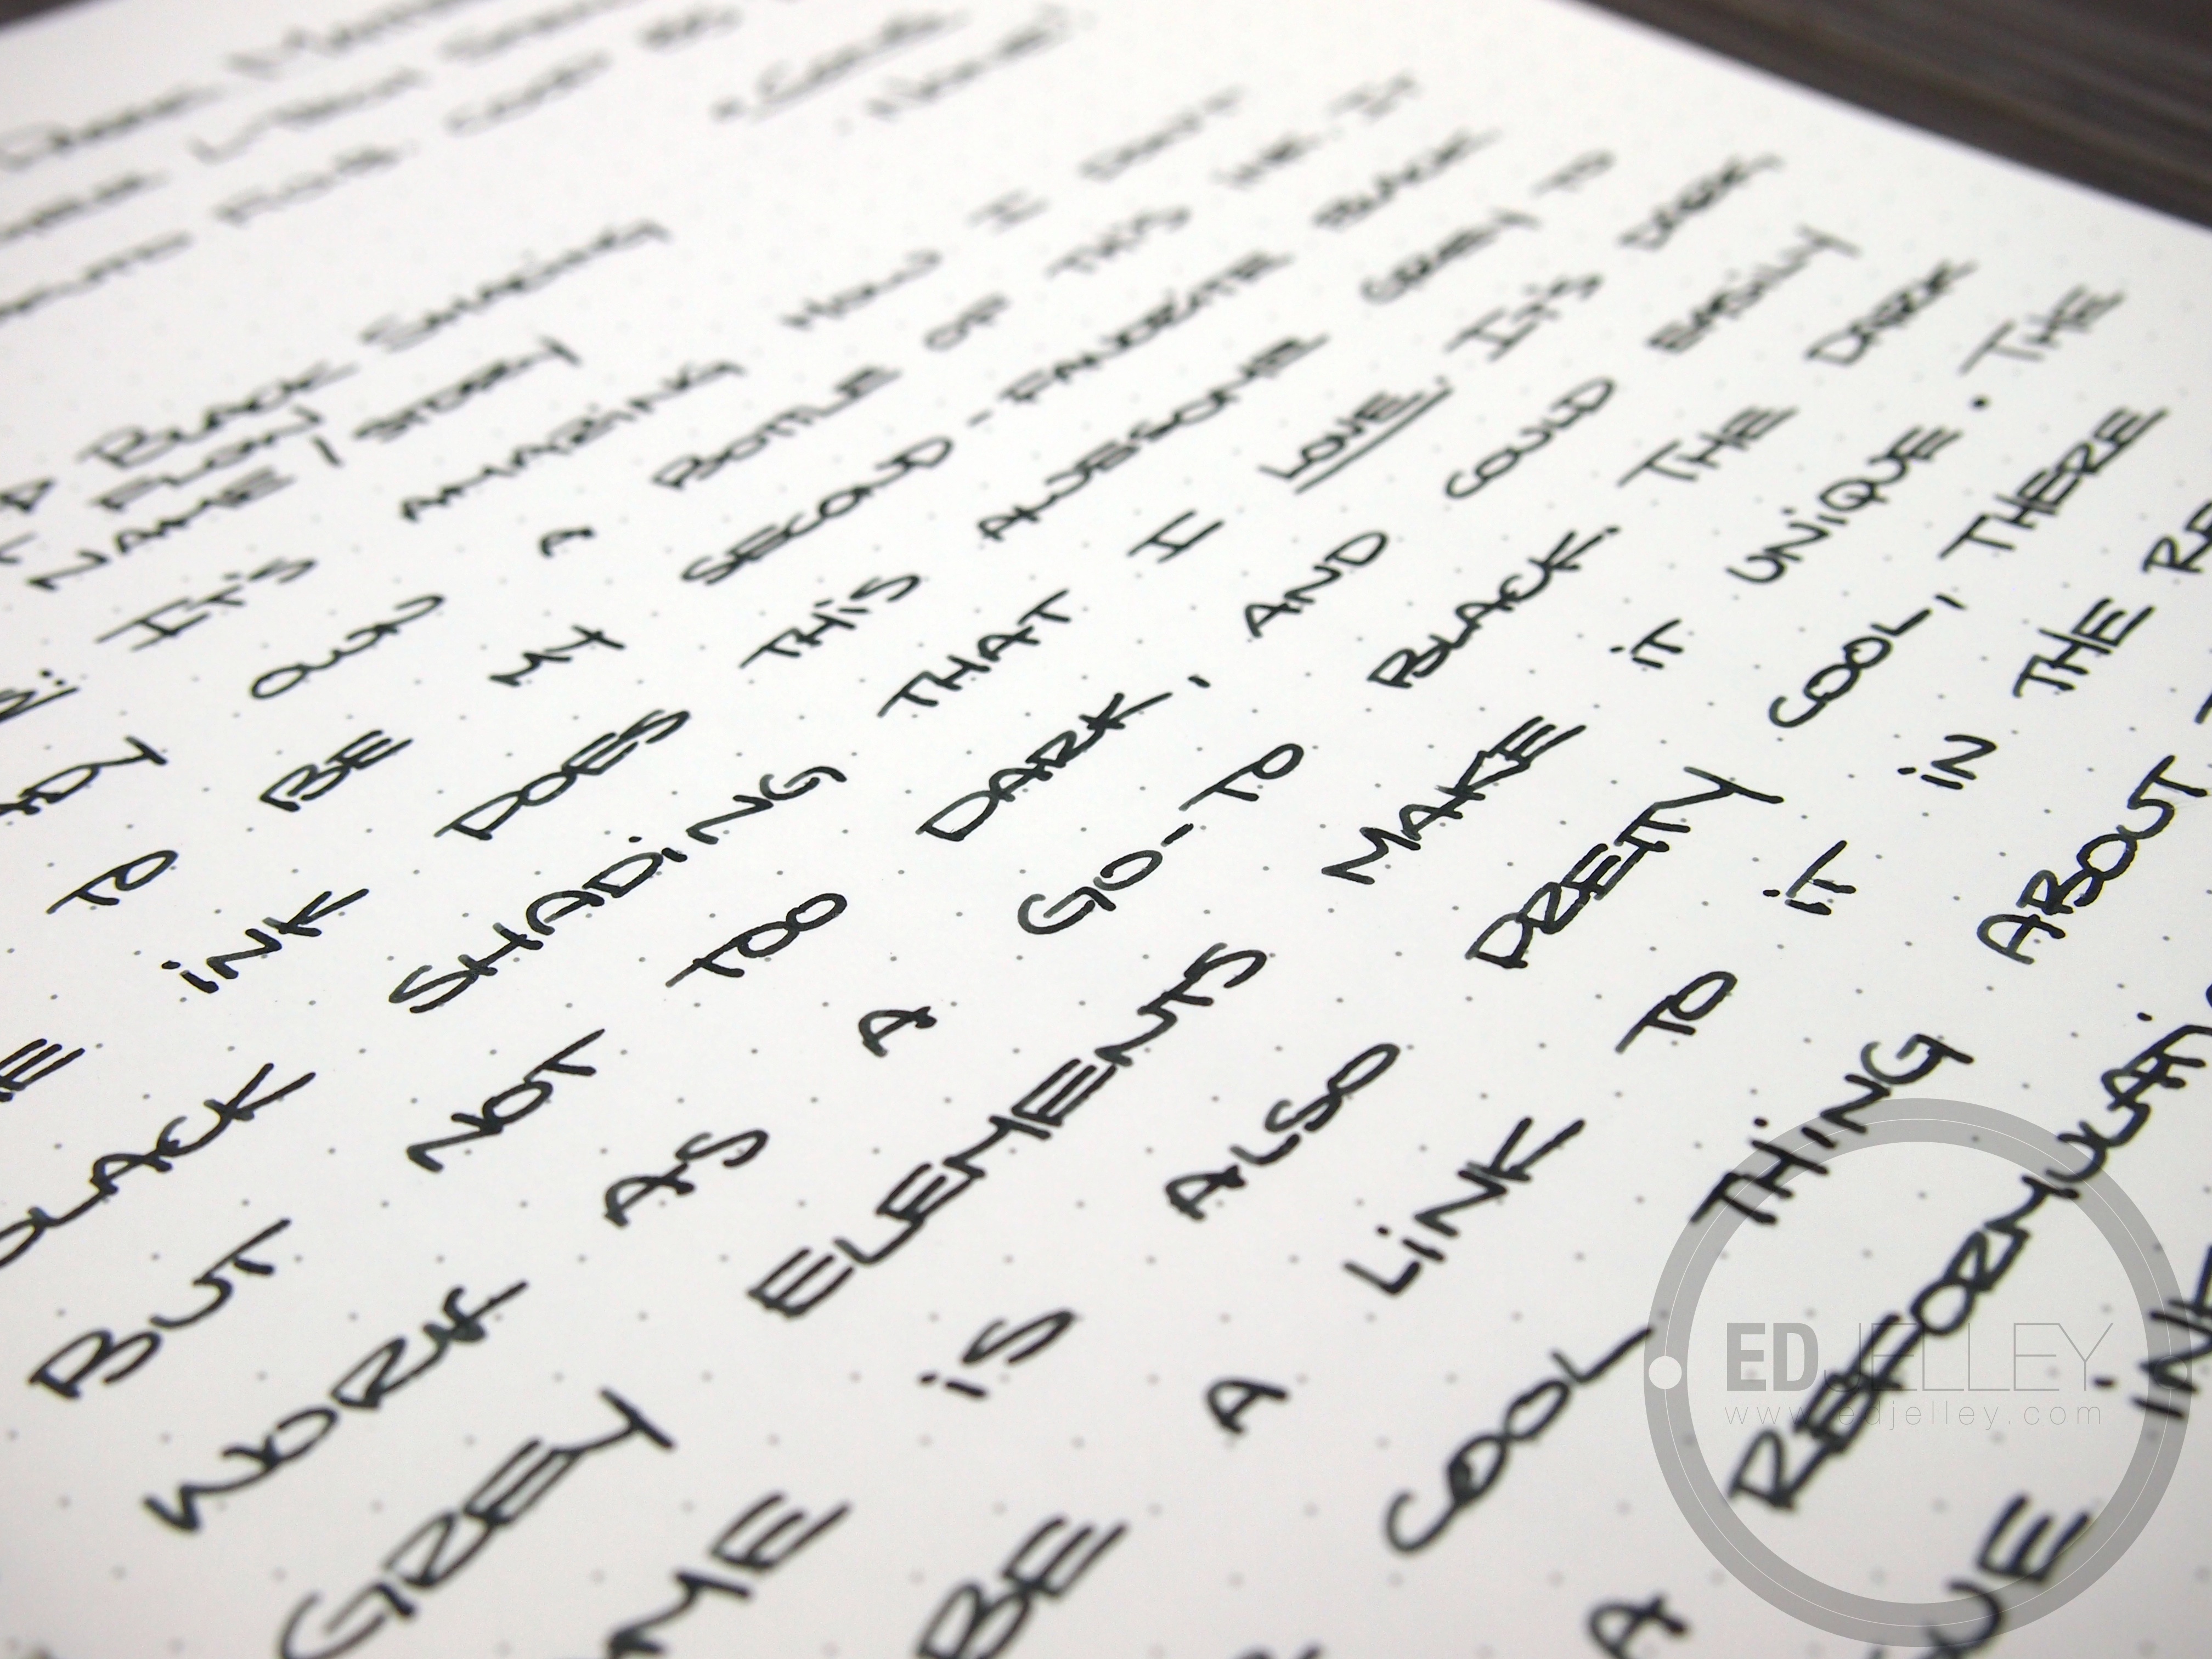 A BLACK SHADING
FLOW
NAME / STORY
IT'S AMAZING HOW I DON'T
OWN A BOTTLE OF THIS INK. IT
TO BE MY SECOND-FAVORITE BLACK
INK DOES THIS AWESOME GREY TO
BLACK SHADING THAT I LOVE. IT'S DARK,
BUT NOT TOO DARK, AND COULD EASILY
WORK AS A GO-TO BLACK. THE DARK
GREY ELEMENTS MAKE IT UNIQUE. THE
ME IS ALSO PRETTY COOL, THERE
BE A LINK TO IT IN THE RE
COOL THING ABOUT
A REFORMULATI
UE INK
EDJELLEY
www.edjelley.com